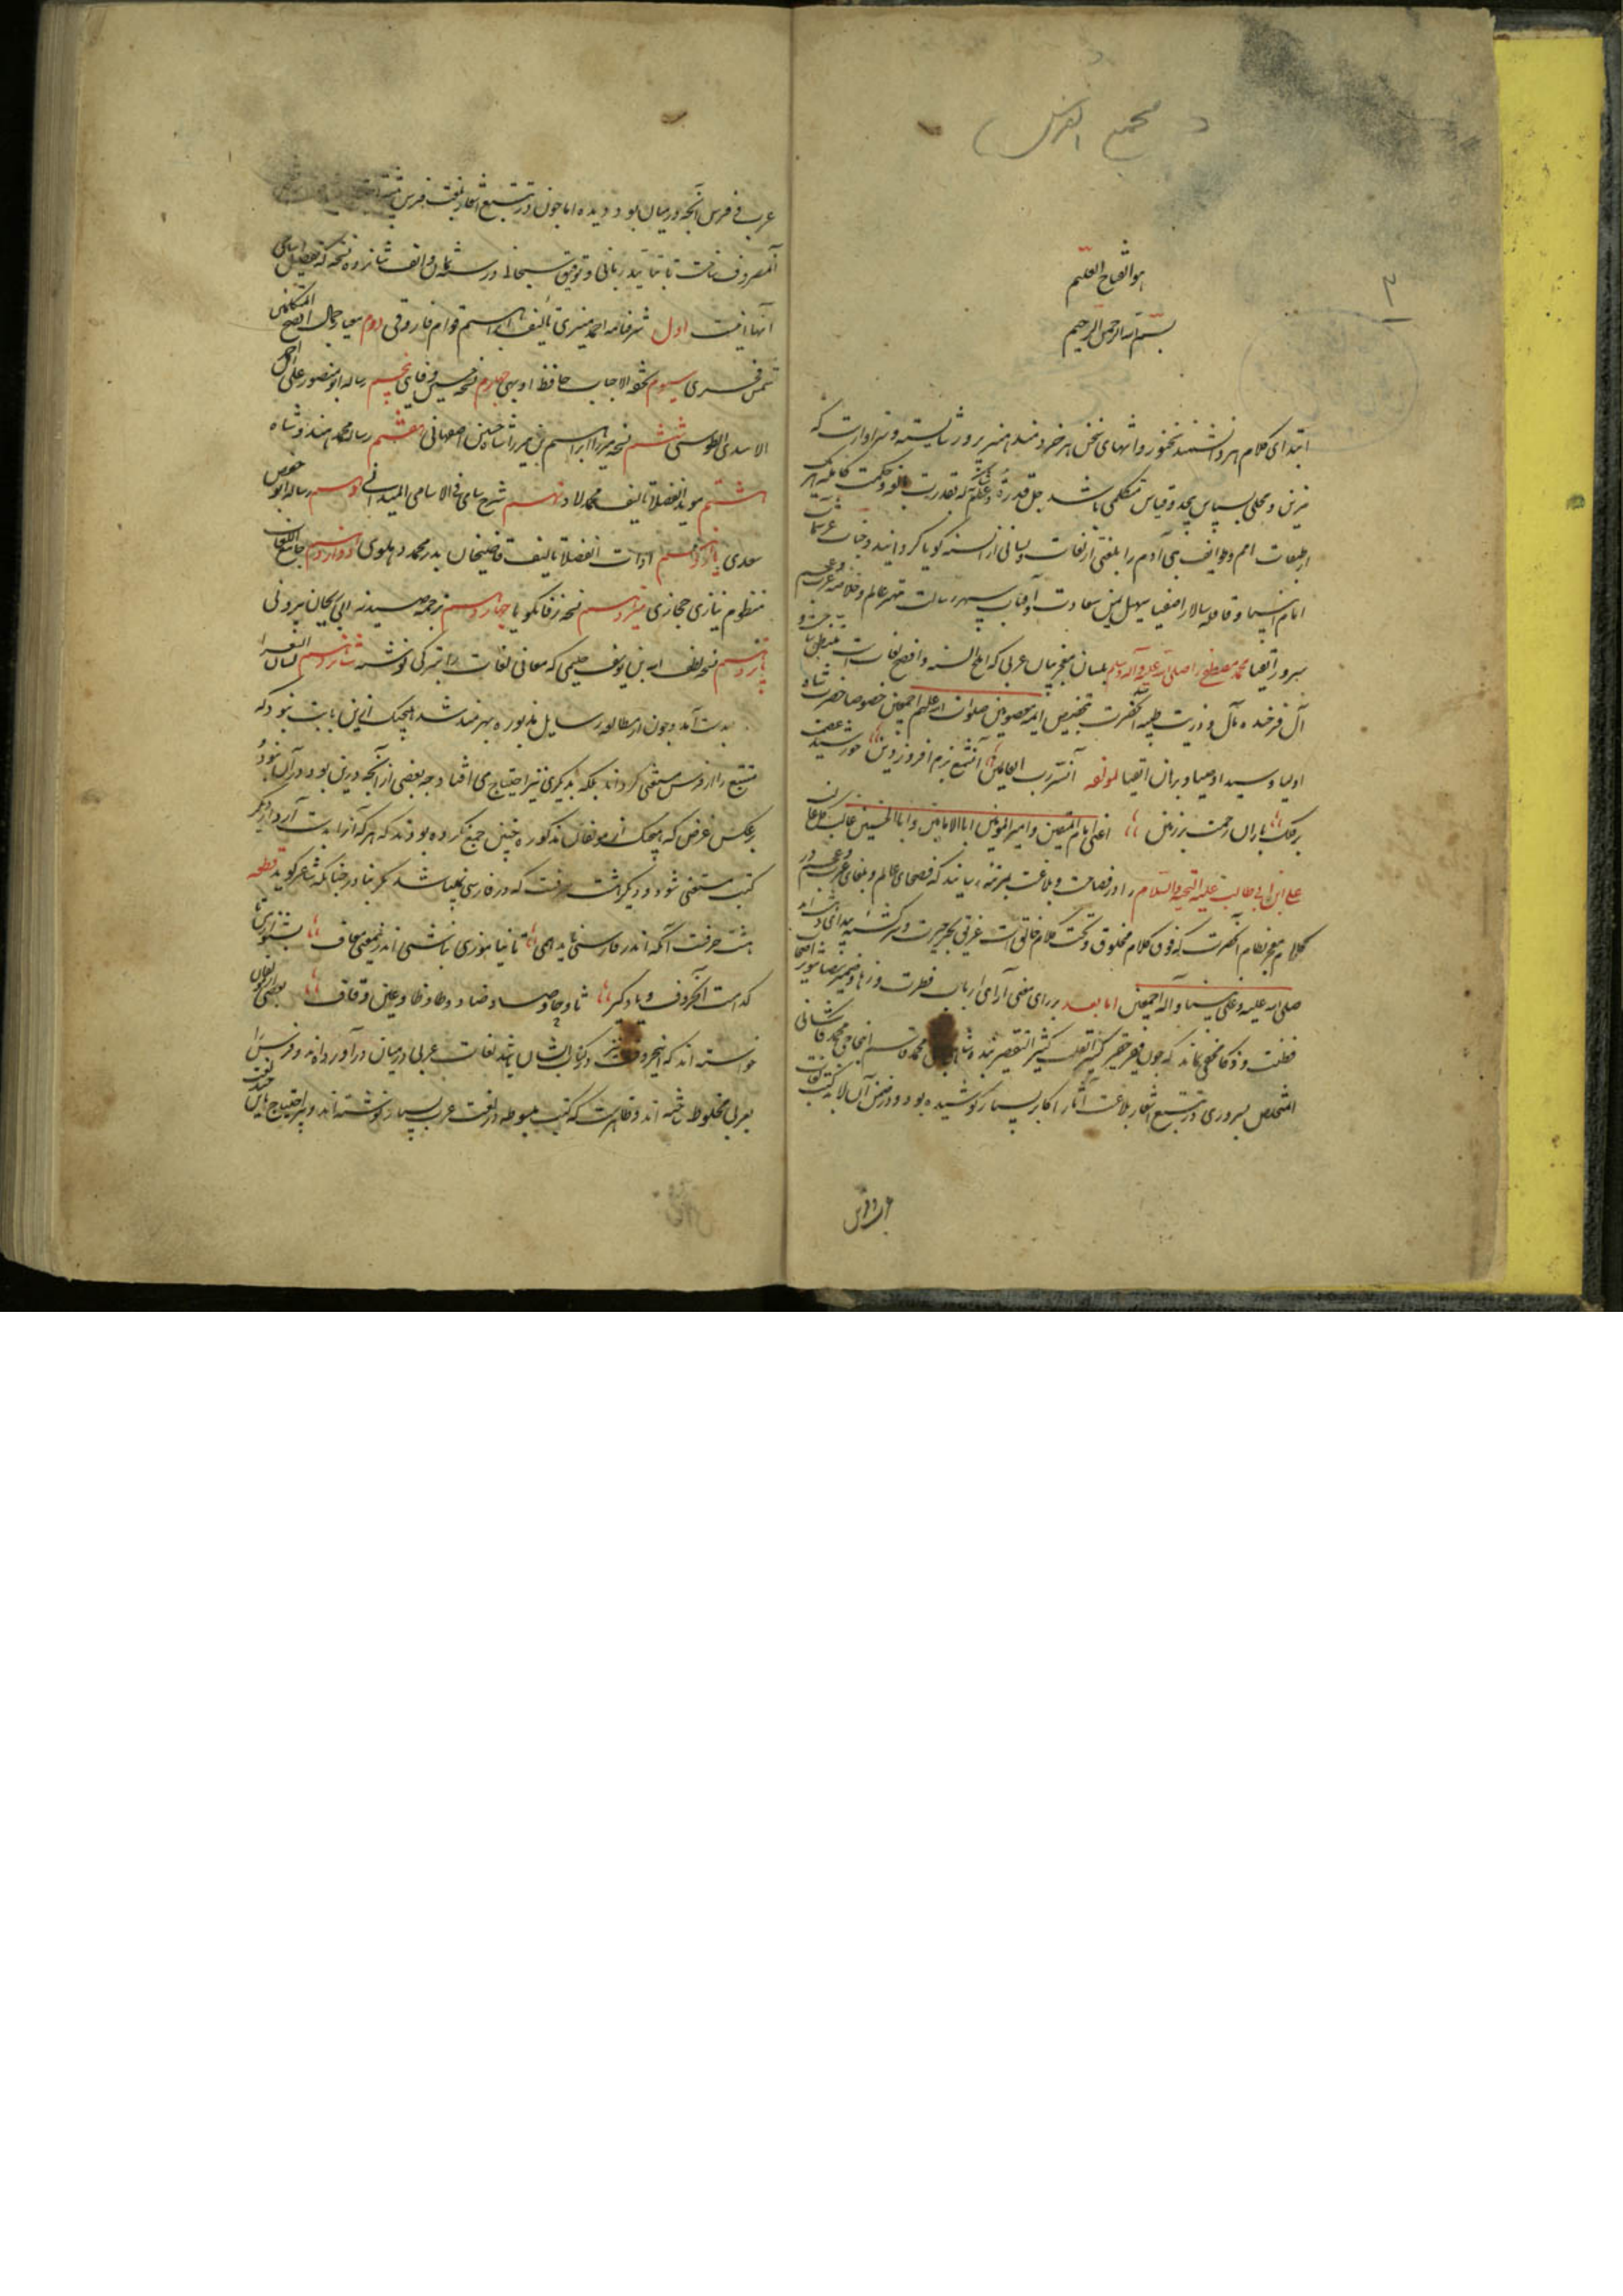 مجمع الفرس
۲
هو الفتاح العلیم
بسم الله الرحمن الرحیم
ابتدای کلام هر دانشمند سخنور و انتهای سخن هر خردمند هنرپرور شایسته و سزاوار است که
مزین و محلی بسپاس بیحد و قیاس متکلمی باشد جل قدرته و عظم شانه که بقدرت بالغه و حکمت کامله هر یک
از طبقات امم و طوایف بنی آدم را بلغتی از لغات و لسانی از السنه گویا گردانید و جناب
امام انبیا و قافله سالار اصفیا سهیل یمن سعادت و آفتاب سپهر رسالت مهتر عالم و خلاصه عرب و عجم
سرور اتقیا محمد مصطفی را صلی الله علیه و آله وسلم بلسان معجز بیان عربی که ابلغ السنه و افصح لغات است
آل فرخنده مآل و ذریت طیبه آنحضرت بتخصیص ایمه معصومین صلوات الله علیهم اجمعین خصوصا حضرت شاه
اولیا و سید اوصیا و برهان اتقیا لمولفه آنسر رب العالمین آنشمع بزم افروز دین خورشید عصمت
بر فلک باران رحمت بر زمین اعنی امام المتقین و امیر المومنین ابا الامامین و ابا الحسنین غالب کل غالب
علی ابن ابی طالب علیه التحیه والسلام را در فصاحت و بلاغت بمرتبه رسانید که فصحای عالم و بلغای عرب و عجم در
کلام معجز نظام آنحضرت که فوق کلام مخلوق و تحت کلام خالق است غریق بحر حیرت و سرگشته
صلی الله علیه و علی نبینا و آله اجمعین اما بعد بر رای معنی آرای ارباب فطرت و ضمیر اصحاب
فطنت و ذکا مخفی نماند که چون فقیر حقیر کثیر التقصیر محمد قاسم ابن حاجی محمد کاشانی
المتخلص بسروری در تتبع اشعار بلاغت آثار اکابر بسیار کوشیده بود و در ضمن آن لابد کتب لغات
عرب و فرس آنچه در میان بود دیده اما چون در تتبع اشعار لغت فرس
آنمصروف داشت تا بتایید ربانی و توفیق سبحانی در سنه ثمان و الف شانزده نسخه که تفصیل اسامی
آنها اینست اول شرفنامه احمد منیری تالیف ابراهیم قوام فاروقی دوم معیار جمالی افصح المتکلمین
شمس فخری سیوم تحفه الاحباب حافظ اوبهی چهارم نسخه حسین وفایی پنجم رساله ابو منصور علی بن احمد
الاسدی الطوسی ششم نسخه میرزا ابراهیم بن میرزا شاه حسین اصفهانی هفتم رساله محمد هندوشاه
هشتم موید الفضلا تالیف محمد لاد نهم شرح سامی فی الاسامی المیدانی دهم رساله ابو حفص
سعدی یازدهم ادات الفضلا تالیف قاضیخان بدر محمد دهلوی دوازدهم جامع اللغات
منظوم نیازی حجازی سیزدهم نسخه زفانگویا چهاردهم ترجمه صیدنه ابی ریحان بیرونی
پانزدهم نسخه لطف الله بن یوسف حلیمی که معانی لغات را بترکی نوشته شانزدهم لسان الشعرا
بدست آمد و چون از مطالعه رسایل مذبوره بهره مند شد هیچیک از این بابت نبود که
متتبع را از فرس مستغنی گرداند بلکه بدیگری نیز احتیاج می افتاد چه بعضی از آنچه درین بود در آن نبود و
برعکس غرض که هیچیک از مولفان مذکوره چنین جمع نکرده بودند که هر که آنرا بدست آرد از دیگر
کتب مستغنی شود و دیگر هشت حرفست که در فارسی نمیباشد مگر بنادر چنانکه شاعر گوید قطعه
هشت حرفست آنکه اندر فارسی ناید همی تا نیاموزی نباشی اندرینمعنی معاف بشنو از من تا
کدامست آنحروف و یاد گیر ثا و حا و صاد و ضاد و طا و ظا و عین و قاف بعضی از مولفان
خواسته اند که اینحروف نیز در کتاب ایشان باشد لغات عربی در میان درآورده اند و فرس را
بعربی مخلوط ساخته اند و ظاهرست که کتب مبسوطه در لغت عرب بسیار نوشته اند و چه احتیاج باین